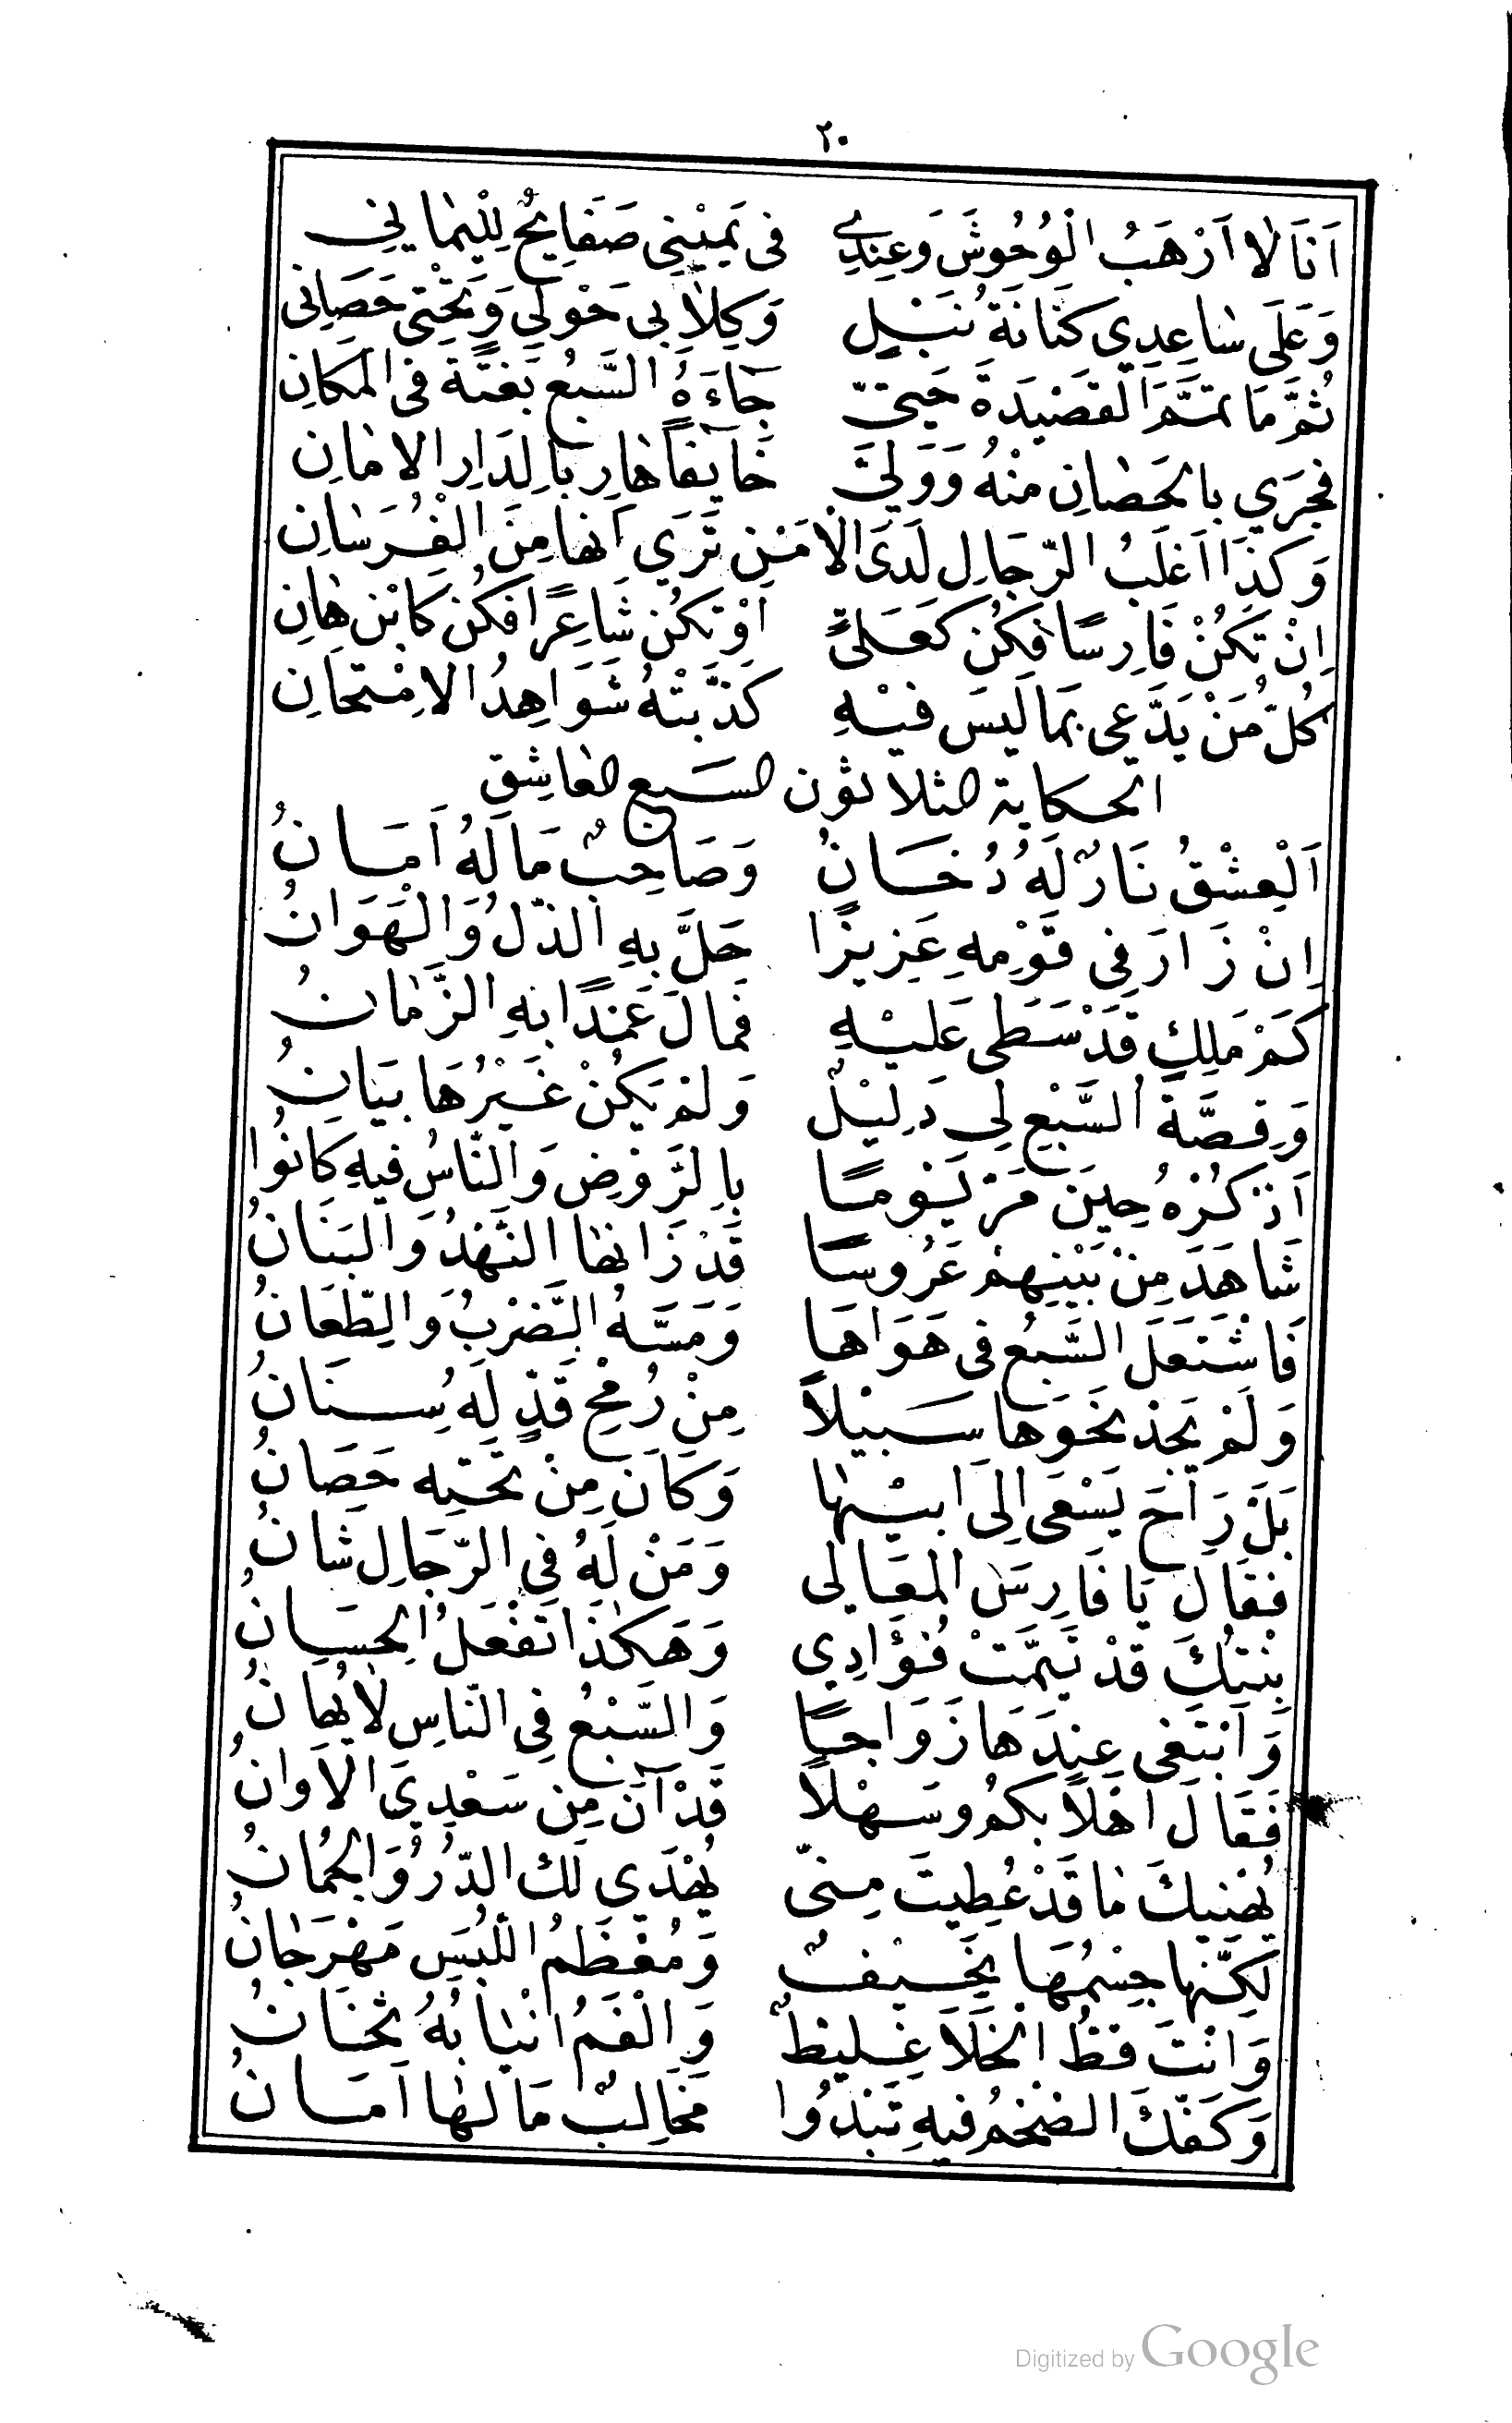 ٢٠
اَنَا لا اَرْهَبُ الْوُحُوشَ وَعِنْدِي في يَمِيْنِي صَفَايِحٌ لِلْيَمانِي
وَعَلَى سَاعِدِي كَنَانَةُ نَبْلٍ وَكِلاَبي حَوْلِي وَتَحْتِي حَصَانِي
ثُمَّ مَا تَمَّمَ القَصْيَدةَ حَتيّ جَاءَهُ السَّبُع بَغْتَةً في المَكَانِ
فَجَرَي بالحَصَانِ مِنْهُ وَوَليَّ خَايِفًا هَارِبًا لِدَارِ الامَانِ
وَكَذَا اَغْلَبُ الرّجَالِ لَدَى الاَمْنِ تَرَي اَنهَا مِنَ الْفُرْسَانِ
اِنْ تَكُنْ فَارِسًا فَكُنْ كَعَلىٍّ اَوْ تَكُنْ شَاعِرًا فَكُنْ كَابْنِ هَانِ
كُلُّ مَنْ يَدَّعِي بَمَا لَيسَ فيْهِ كَذَّبَتْهُ شَوَاهِدُ الاِمْتحَانِ
الحكاية الثلاثون السَبع العَاشِق
اَلْعِشْقُ نَارٌ لَهُ دُخَانٌ وَصَاحِبٌ مَالَهُ اَمَانُ
اِنْ زَارَ فِي قَوْمِهِ عَزِيزًا حَلَّ بِهِ الذّلُ وَالْهَوَانُ
كَمْ مَلِكٍ قَدْ سَطَى عَلَيْهِ فَمالَ عَمْدًا بِهِ الزَّمَانُ
وَقِصَّةُ السَّبْعِ لِي دَلِيْلٌ وَلَمْ يَكُنْ غَيْرُهَا بَيَانُ
اَذْكُرْهُ حِينَ مَرّ يَوْمًا بِالرَّوضِ وَالنّاسُ فيهِ كَانُوا
شَاهَدَ مِنْ بَيْنِهِمْ عَرُوسًا قَدْ زَانهَا النَّهْدُ وَالبَنَانُ
فَاشْتَعَلَ السَّبُع في هَوَاهَا وَمَسَّهُ الضَّرْبُ وَالطِّعَانُ
وَلَمْ يَجِدْ نَحْوَهَا سَبيْلاً مِنْ رُمْحِ قَدٍّ لَهُ سِنَانُ
بَلْ رَاحَ يَسْعَى اِلَى اَبيْهَا وَكَانَ مِنْ تَحْتِه حَصَانُ
فَقَالَ يَا فَارِسَ المعَالي وَمَنْ لَهُ في الرّجَالِ شَانُ
بِنْتُكَ قَدْ تَيَّمَتْ فُؤَادِي وَهَكَذَا تَفْعَلُ الحِسَانُ
وَاَبْتَغي عِندَهَا زَوَاجًا وَالسَّبْعُ فِي النّاسِ لاَ يُهَانُ
فَقَالَ اَهْلاً بكمُ وسَهْلاً قَدْ آنَ مِن سَعْدِيَ الاَوَانُ
يُهْنيكَ مَا قَدْ عُطِيتَ مِنيّ يُهْدَي لَكَ الدّرُ وَالجُمَانُ
لَكِنّهَا جِسْمُهَا نَحِيفٌ وَمُعْظَمُ اللّبْسِ مَهْرَجَانُ
وَاَنْتَ فَظُّ الخَلاَ غَليظٌ وَالْفَمُ اَنْيَابُهُ ثخَانُ
وَكَفّكَ الضخْمُ فِيهِ تَبْدُوا مَخَالِبٌ مَا لَهَا اَمَانُ
Digitized by Google